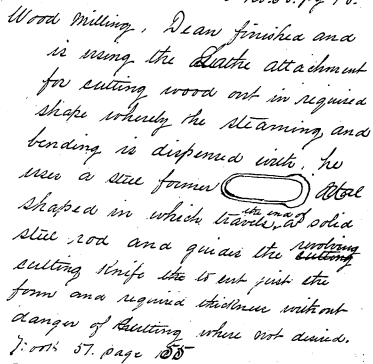 Wood Milling, Dean finished and
is using the Lathe attachment
for cutting wood out in required
shape whereby the steaming and
bending is dispensed with, he
uses a steel former steel
shaped in which travels the end of a solid
steel rod and guides the revolving cutting
cutting knife to cut just the
form and required thickness without
danger of cutting where not desired.
Book 57. page 155